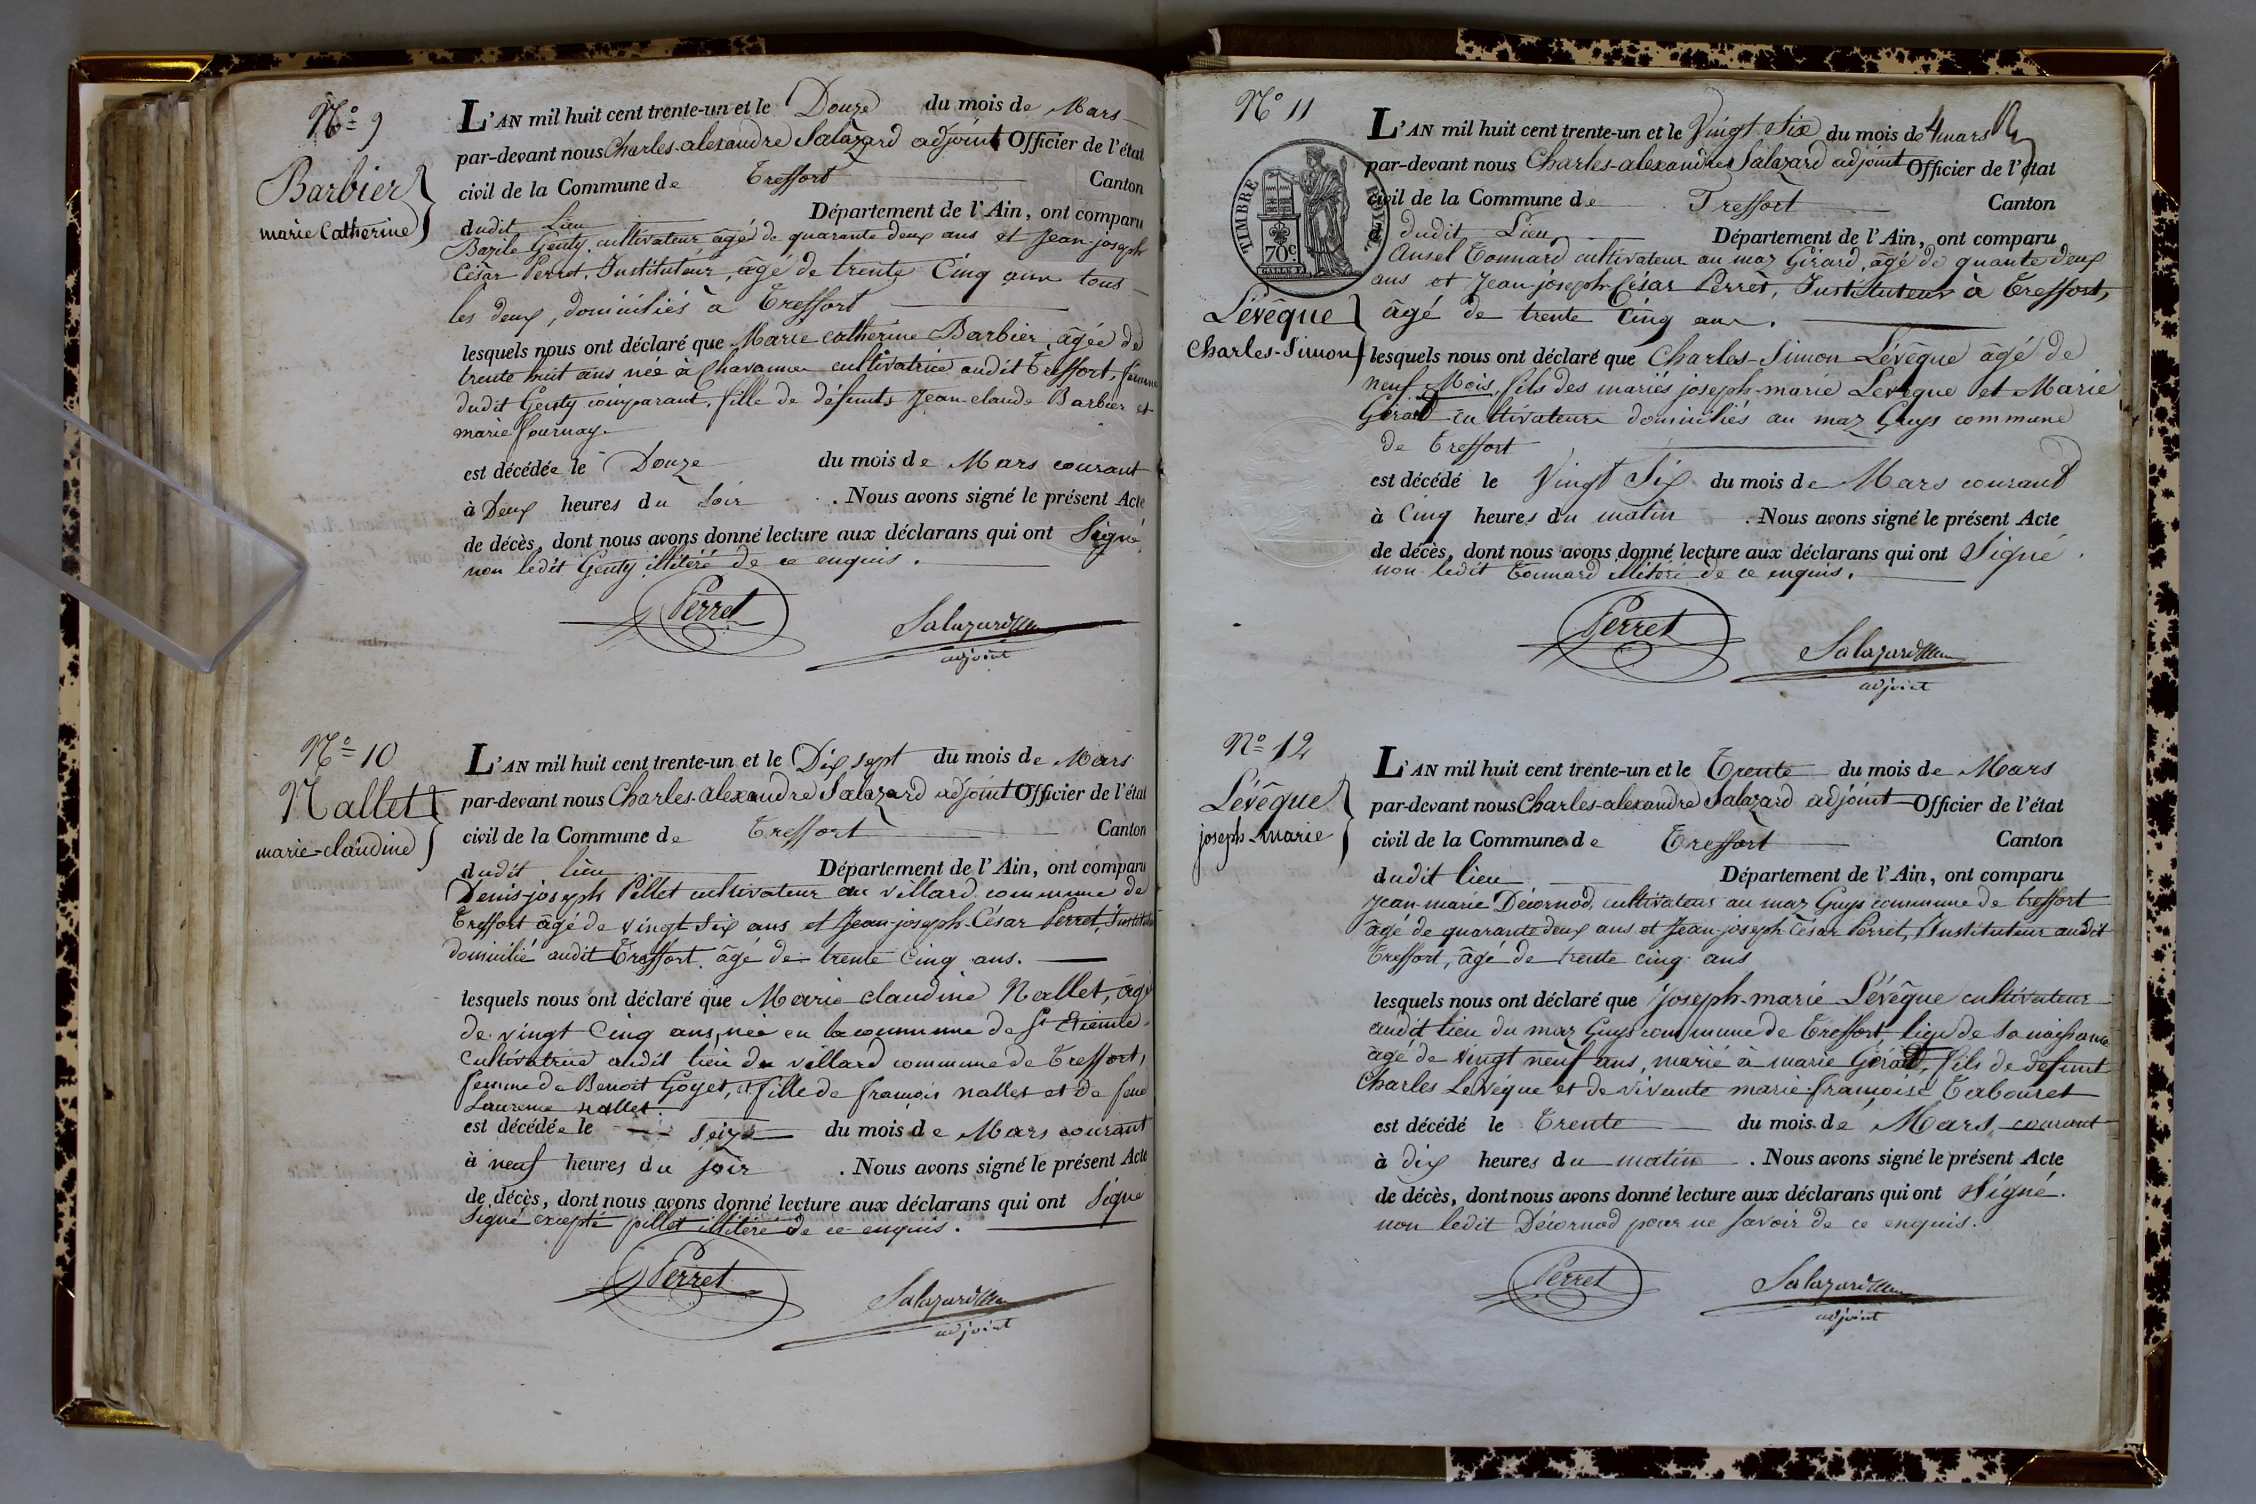 N.º 9
Barbier
marie Catherine
L'AN mil huit cent trente-un et le Douze du mois de Mars
par-devant nous Charles-alexandre Salazard adjoint Officier de l'état
civil de la Commune de Treffort Canton
dudit Lieu Département de l'Ain, ont comparu
Bazile Genty, cultivateur âgé de quarante deux ans et Jean-joseph
César Perret, Instituteur, âgé de trente Cinq ans tous
les deux, domiciliés à Treffort
lesquels nous ont déclaré que Marie catherine Barbier, âgée de
trente huit ans née à Chavanne cultivatrice audit Treffort, femme
dudit Genty comparant, fille de défunts Jean claude Barbier et
marie fournay.
est décédée le Douze du mois de Mars courant
à Deux heures du Soir . Nous avons signé le présent Acte
de décès, dont nous avons donné lecture aux déclarans qui ont Signé
non ledit Genty illitéré de ce enquis.
Perret
Salazard
adjoint
N.º 10
Nallet
marie-claudine
L'AN mil huit cent trente-un et le Dix sept du mois de Mars
par-devant nous Charles-alexandre Salazard adjoint Officier de l'état
civil de la Commune de Treffort Canton
dudit lieu Département de l'Ain, ont comparu
Denis-joseph Pillet cultivateur au villard commune de
Treffort âgé de vingt Six ans et Jean-joseph-César Perret, Instituteur
domicilié audit Treffort âgé de trente Cinq ans.
lesquels nous ont déclaré que Marie claudine Nallet, âgée
de vingt Cinq ans, née en la commune de St Etienne
Cultivatrice audit lieu du villard commune de Treffort,
femme de Benoit Goyet, et fille de françois nallet et de feue
Laurence nallet.
est décédée le seize du mois de Mars courant
à neuf heures du soir . Nous avons signé le présent Acte
de décès, dont nous avons donné lecture aux déclarans qui ont Signé
Signé excepté pillet illitéré de ce enquis.
Perret
Salazard
adjoint
N.º 11
TIMBRE ROYAL
70c
Lévêque
Charles-Simon
L'AN mil huit cent trente-un et le Vingt Six du mois de mars
par-devant nous Charles-alexandre Salazard adjoint Officier de l'état
civil de la Commune de Treffort Canton
dudit Lieu Département de l'Ain, ont comparu
Ansel Tonnard cultivateur au maz Girard, âgé de quante deux
ans et Jean-joseph-César Perret, Instituteur à Treffort,
âgé de trente Cinq ans.
lesquels nous ont déclaré que Charles-Simon Lévêque âgé de
neuf Mois, fils des mariés joseph-marie Levêque et Marie
Gérard cultivateurs domiciliés au maz Guys commune
de Treffort
est décédé le Vingt Six du mois de Mars courant
à Cinq heures du matin . Nous avons signé le présent Acte
de décès, dont nous avons donné lecture aux déclarans qui ont Signé.
non ledit Tonnard illitéré de ce enquis.
Perret
Salazard
adjoint
N.º 12
Lévêque
joseph-marie
L'AN mil huit cent trente-un et le Trente du mois de Mars
par-devant nous Charles-alexandre Salazard adjoint Officier de l'état
civil de la Commune de Treffort Canton
dudit lieu Département de l'Ain, ont comparu
Jean-marie Décornod, cultivateur au maz Guys commune de treffort
âgé de quarante deux ans et Jean-joseph César Perret, Instituteur audit
Treffort, âgé de trente cinq ans
lesquels nous ont déclaré que joseph-marie Lévêque cultivateur
audit lieu du maz Guys commune de Treffort lieu de sa naissance
âgé de vingt neuf ans, marié à marie Gérard, fils de défunt
Charles Levêque et de vivante marie-françoise Terbouret
est décédé le Trente du mois de Mars courant
à dix heures du matin . Nous avons signé le présent Acte
de décès, dont nous avons donné lecture aux déclarans qui ont Signé.
non ledit Décornod pour ne savoir de ce enquis.
Perret
Salazard
adjoint